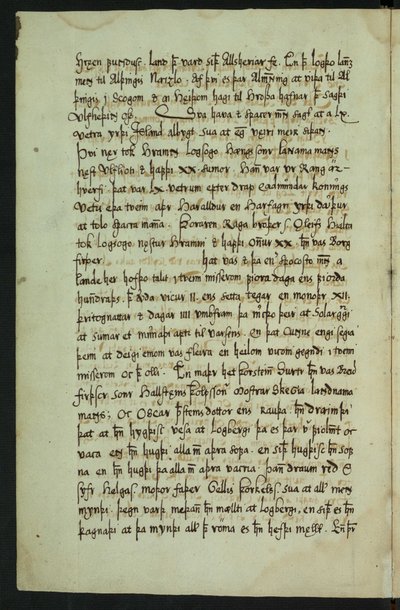 Hrzen Buisdusc. land þ̄ vard siþ Allsheriar fe. En þ̄ logþo lanz
menn til Alþingis Neizlo. Af þvi es þar Almēning at viþa til Al
þingis i Scogom. ⁊ a Heiþom hagi til Hroßa hafnar. þ̄ sagþi
Ulfheþenn oß. Sva hava ⁊ spacer menn sagt at a LX.
vetra yrþi Island Albygt sva at eigi veiri meir siþan.
Þvi ner toc Hramn Logsogo Hængs sonr Landnama manns
nest Ulflioti ⁊ hafþi. XX. sumor. Hann var ur Rang ar-
hverfi. þat var LX vetrum epter drap Eadmundar Konungs
Vetri eþa tveim aþr Haralldur en Harfagri yrþi dauþur
at tolo spacra manna. Þoraren Raga broþer s. Oleifs Hialta
tok Logsogo nestur Hramni ⁊ hafþi onnur XX. hann vas Borg
firþer. Þat vas ⁊ þa en Spocosto menn a
lande her hofþo talit i tveim misserom fiora daga ens fiorþa
hundraþs. þ̄ verþa vicur II. ens setta tegar en monoþr XII.
þritognattar ⁊ dagar IIII umbfram þa mercþo þeir at Solargangi
at sumar et munaþi aptr til varsens. en þat cunni engi segia
þeim at deigi emom vas fleira en heilom vicom gegndi i tveim
misserom oc þ̄ olli. En maþr het Þorstein Surtr hann vas Breid
firþscr sonr Hallsteins Þorolfssonar Mostrar Skeggia landnama
manns; oc Oscar Þorsteins dottor ens Rauþa. hann dreimþi
þat at hann hygþisc vesa at Logbergi þa es þar v fiolment oc
vaca enn hann hugþi alla menn aþra sofa. en siþan hugþisc hann sof
na en hann hugþi þa alla menn aþra vacna. Þann draum red O
syfr Helga s. moþor faþer Gellis Þorkelss. sva at aller menn
myndi þegn varþ meþan hann mællti at Logbergi, en siþ es hann
þagnaþi at þa myndi aller þ̄ roma es hann hefþi mællt. En þr